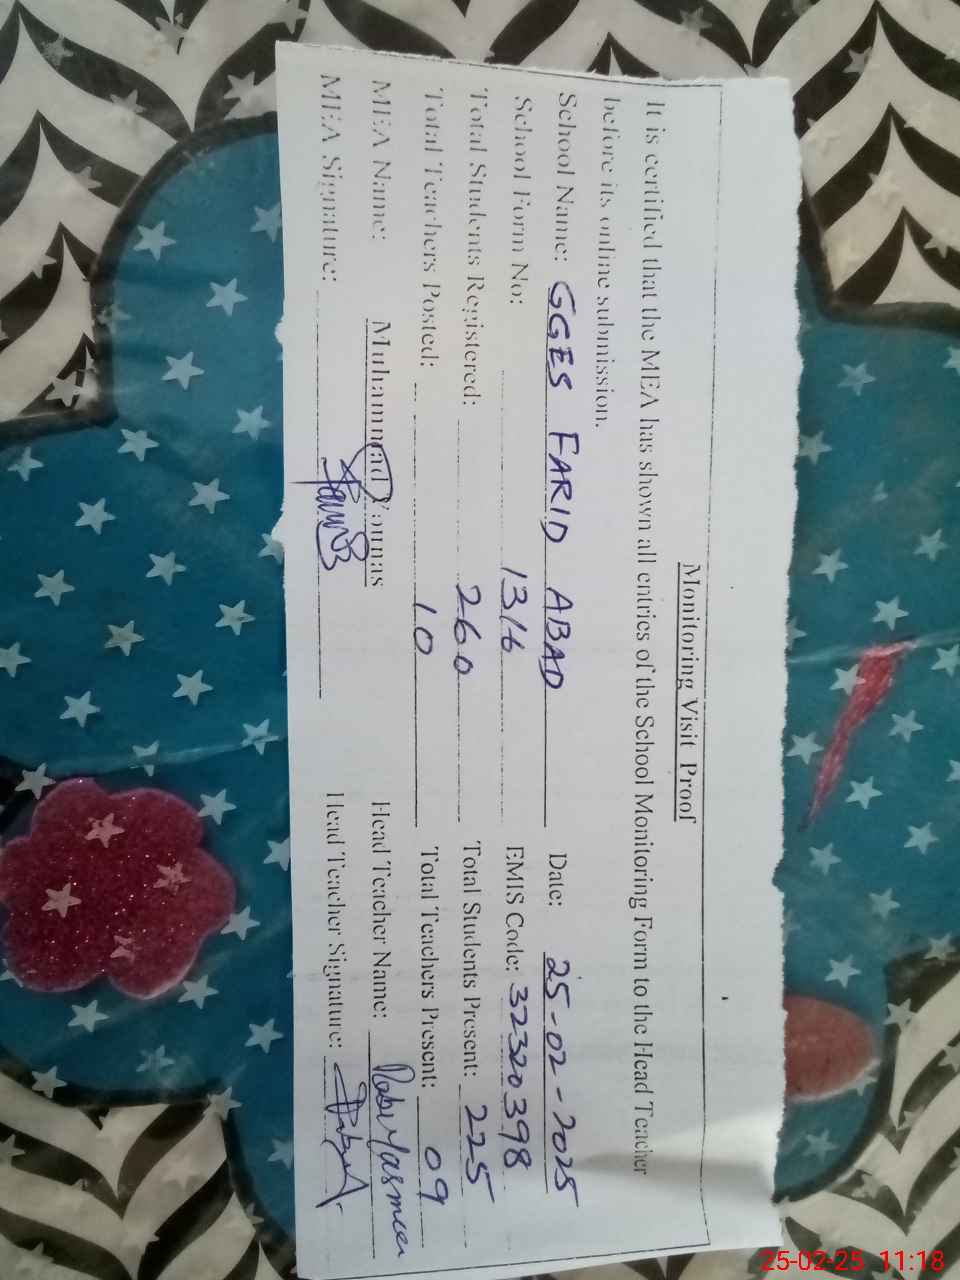 Monitoring Visit Proof
It is certified that the MEA has shown all entries of the School Monitoring Form to the Head Teacher
before its online submission.
School Name: GGES FARID ABAD Date: 25-02-2025
School Form No: 1316 EMIS Code: 32320398
Total Students Registered: 260 Total Students Present: 225
Total Teachers Posted: 10 Total Teachers Present: 09
MEA Name: Muhammad Younas Head Teacher Name: Yasmeen
MEA Signature: Head Teacher Signature:
25-02-25 11:18